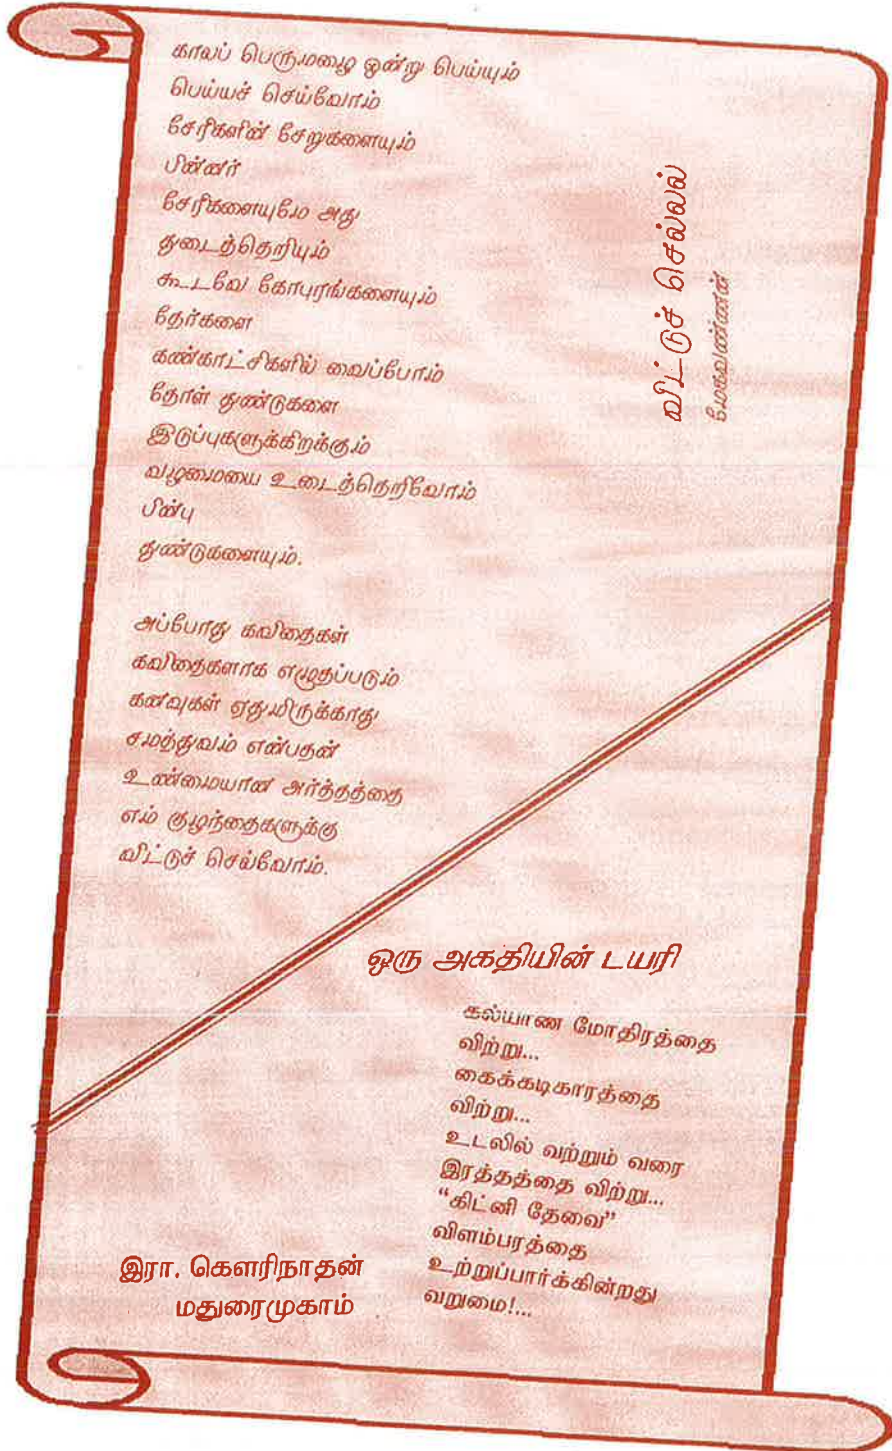 விட்டுச் செல்லல்
மேகவண்ணன்
காலப் பெருமழை ஒன்று பெய்யும்
பெய்யச் செய்வோம்
சேரிகளின் சேறுகளையும்
பின்னர்
சேரிகளையுமே அது
துடைத்தெறியும்
கூடவே கோபுரங்களையும்
தேர்களை
கண்காட்சிகளில் வைப்போம்
தோள் துண்டுகளை
இடுப்புகளுக்கிறக்கும்
வழமையை உடைத்தெறிவோம்
பின்பு
துண்டுகளையும்.
அப்போது கவிதைகள்
கவிதைகளாக எழுதப்படும்
கனவுகள் ஏதுமிருக்காது
சமத்துவம் என்பதன்
உண்மையான அர்த்தத்தை
எம் குழந்தைகளுக்கு
விட்டுச் செல்வோம்.
ஒரு அகதியின் டயரி
கல்யாண மோதிரத்தை
விற்று...
கைக்கடிகாரத்தை
விற்று...
உடலில் வற்றும் வரை
இரத்தத்தை விற்று...
“கிட்னி தேவை”
விளம்பரத்தை
உற்றுப்பார்க்கின்றது
வறுமை!...
இரா. கௌரிநாதன்
மதுரைமுகாம்